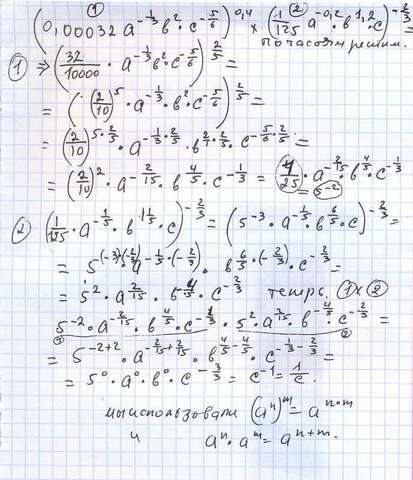 ① ②
(0,00032 a^{-1/3} в^2 · c^{-5/6})^{0,4} × (1/125 a^{-0,2} · в^{1,2} · c)^{-2/3} =
по частям решим.
① ⇒ (32/10000 · a^{-1/3} в^2 · c^{-5/6})^{2/5} =
= ((2/10)^5 · a^{-1/3} · в^2 · c^{-5/6})^{2/5} =
= (2/10)^{5·2/5} · a^{-1/3·2/5} · в^{2/1·2/5} · c^{-5/6·2/5} =
= (2/10)^2 · a^{-2/15} · в^{4/5} · c^{-1/3} = 1/25 · a^{-2/15} · в^{4/5} · c^{-1/3}
= 5^{-2}
② (1/125 · a^{-1/5} · в^{1 1/5} · c)^{-2/3} = (5^{-3} · a^{-1/5} · в^{6/5} · c)^{-2/3} =
= 5^{(-3)·(-2/3)} · a^{-1/5·(-2/3)} · в^{6/5·(-2/3)} · c^{-2/3} =
= 5^2 · a^{2/15} · в^{-4/5} · c^{-2/3} теперь ① × ②
5^{-2} · a^{-2/15} · в^{4/5} · c^{-1/3} · 5^2 · a^{2/15} · в^{-4/5} · c^{-2/3} =
① ②
= 5^{-2+2} · a^{-2/15+2/15} · в^{4/5-4/5} · c^{-1/3-2/3} =
= 5^0 · a^0 · в^0 · c^{-3/3} = c^{-1} = 1/c.
мы использовали (a^n)^m = a^{n·m}
и a^n · a^m = a^{n+m}.